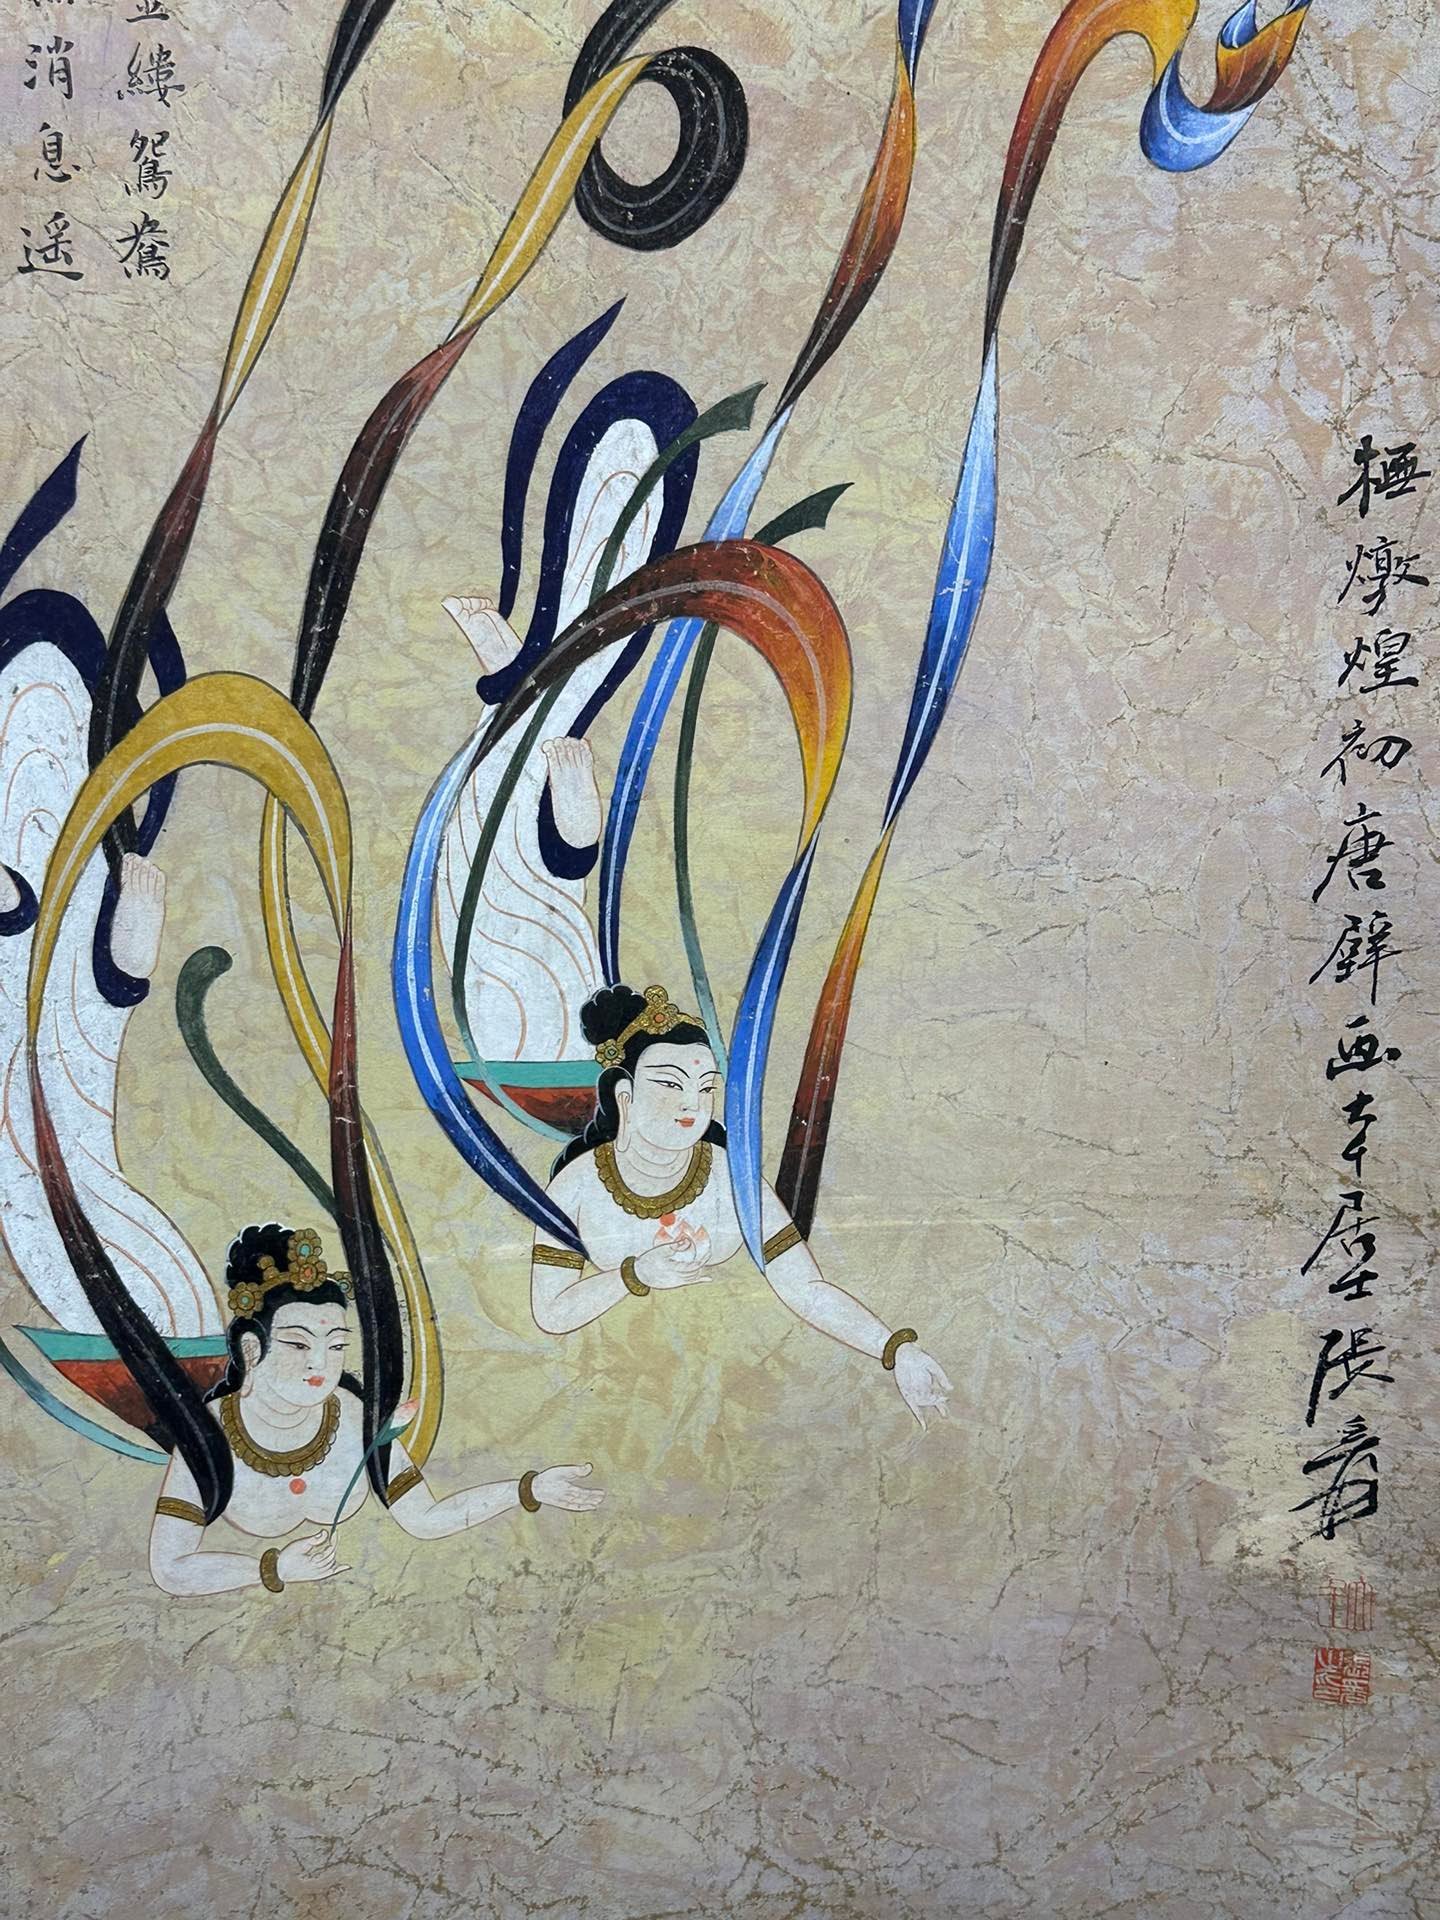 橅燉煌初唐壁画大千居士張爰
縷鴛鴦
消息遥